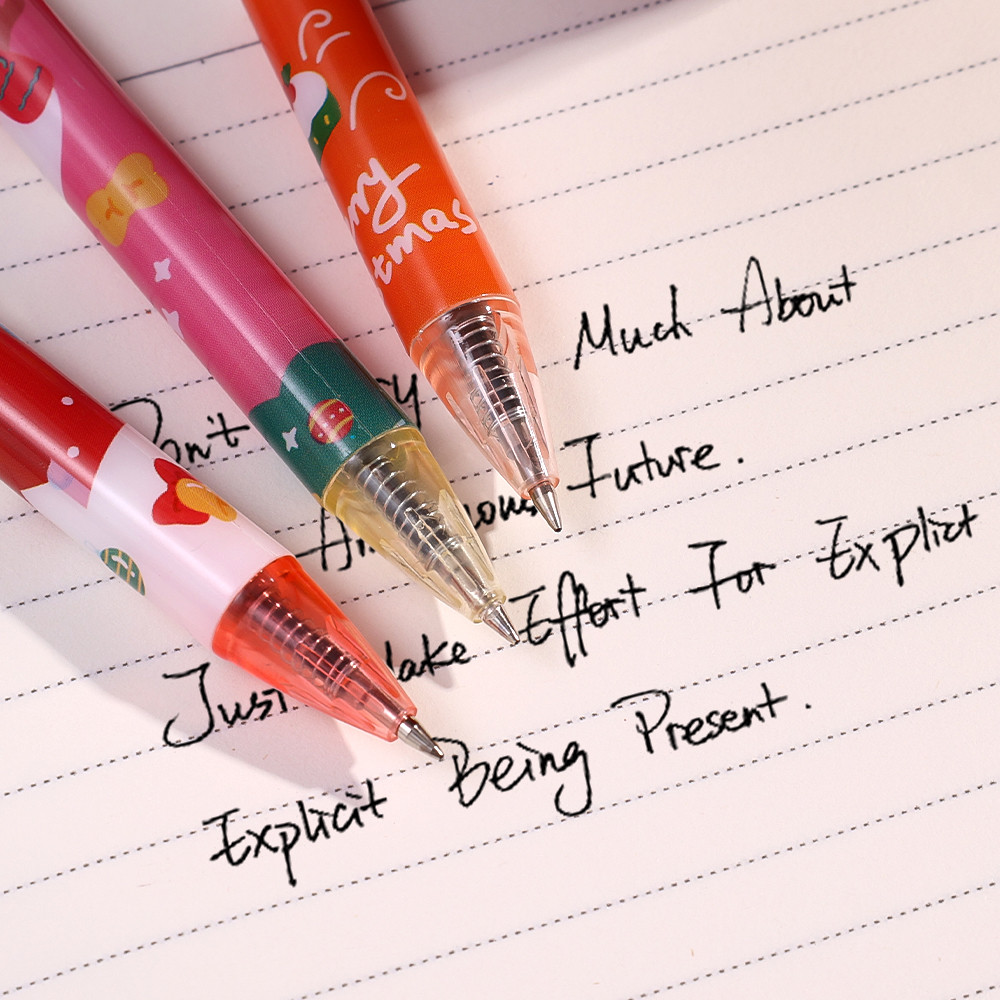 rry
tmas
Don't Much About
Future.
Just Make Effort For Explict
Explicit Being Present.